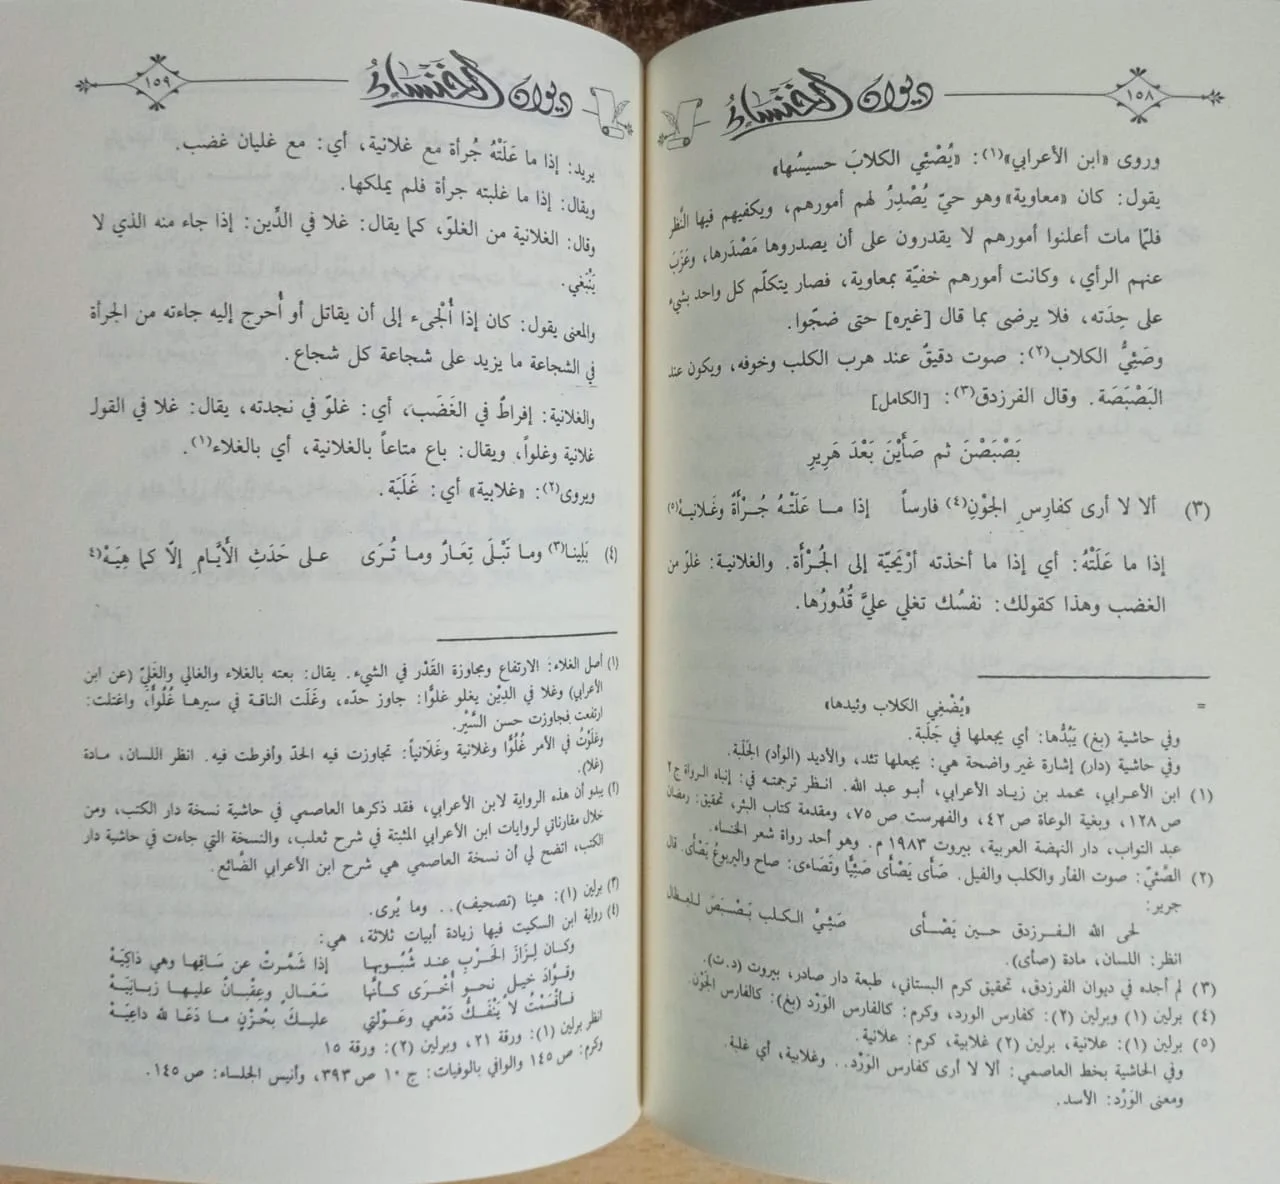 ديوان الخنساء
١٥٨
وروى «ابن الأعرابي»(١): «يُضْئِي الكلابَ حسيسُها»
يقول: كان «معاوية» وهو حيّ يُصْدِرُ لهم أمورهم، ويكفيهم فيها النَّظر
فلمّا مات أعلنوا أمورهم لا يقدرون على أن يصدروها مَصْدَرها، وعَزَبَ
عنهم الرأي، وكانت أمورهم خفيّة بمعاوية، فصار يتكلّم كل واحد بشيء
على حِدَته، فلا يرضى بما قال [غيره] حتى ضجّوا.
وصَئِيُّ الكلاب(٢): صوت دقيقٌ عند هرب الكلب وخوفه، ويكون عند
البَصْبَصَة. وقال الفرزدق(٣): [الكامل]
بَصْبَصْنَ ثم صَأَيْنَ بَعْدَ هَرِيرِ
(٣) ألا لا أرى كفارِسِ الجَوْنِ(٤) فارساً إذا ما عَلَتْهُ جُرْأَةٌ وغَلانيهْ(٥)
إذا ما عَلَتْهُ: أي إذا ما أخذته أرْيَحيّة إلى الجُرْأَة. والغلانية: غلوّ من
الغضب وهذا كقولك: نفسُك تغلي عليَّ قُدُورُها.
= «يُضْغِي الكلاب وئيدها»
وفي حاشية (بغ) يَبُدُّها: أي يجعلها في جَلَبة.
وفي حاشية (دار) إشارة غير واضحة هي: يجعلها تئد، والأديد (الوأد) الجَلَبة.
(١) ابن الأعرابي، محمد بن زياد الأعرابي، أبو عبد الله. انظر ترجمته في: إنباه الرواة ج٢
ص١٢٨، وبغية الوعاة ص٤٢، والفهرست ص٧٥، ومقدمة كتاب البئر، تحقيق: رمضان
عبد التواب، دار النهضة العربية، بيروت ١٩٨٣م. وهو أحد رواة شعر الخنساء.
(٢) الصَّئِيّ: صوت الفأر والكلب والفيل. صَأى يَصْأى صَئِيًّا وتَصَاءى: صاح واليربوعُ يَصْأى. قال
جرير:
لحى الله الفرزدق حين يَصْأى صَئِيَّ الكلب بَصْبَصَ للعظال
انظر: اللسان، مادة (صأى).
(٣) لم أجده في ديوان الفرزدق، تحقيق كرم البستاني، طبعة دار صادر، بيروت (د.ت).
(٤) برلين (١) وبرلين (٢): كفارس الورد، وكرم: كالفارس الوَرْد (بغ): كالفارس الجَوْن.
(٥) برلين (١): علانية، برلين (٢) غلابية، كرم: علانية.
وفي الحاشية بخط العاصمي: ألا لا أرى كفارس الوَرْد.. وغلابية، أي غلبة.
ومعنى الوَرْد: الأسد.
ديوان الخنساء
١٥٩
يريد: إذا ما عَلَتْهُ جُرأة مع غلانية، أي: مع غليان غضب.
ويقال: إذا ما غلبته جرأة فلم يملكها.
وقال: الغلانية من الغلوّ، كما يقال: غلا في الدِّين: إذا جاء منه الذي لا
يَنْبغي.
والمعنى يقول: كان إذا أُلْجىء إلى أن يقاتل أو أُحرج إليه جاءته من الجرأة
في الشجاعة ما يزيد على شجاعة كل شجاع.
والغلانية: إفراطٌ في الغَضَب، أي: غلوّ في نجدته، يقال: غلا في القول
غلانية وغلواً، ويقال: باع متاعاً بالغلانية، أي بالغلاء(١).
ويروى(٢): «غلابية» أي: غَلَبَة.
(٤) بَلِينا(٣) وما تَبْلَى تِعَارٌ وما تُرَى على حَدَثِ الأيَّامِ إلّا كما هِيَهْ(٤)
(١) أصل الغلاء: الارتفاع ومجاوزة القَدْر في الشيء. يقال: بعته بالغلاء والغالي والغَلِيّ (عن ابن
الأعرابي) وغلا في الدِيْن يغلو غلوًّا: جاوز حدّه، وغَلَت الناقة في سيرها غُلُوًّا، واغتلت:
ارتفعت فجاوزت حسن السَّيْر.
وغَلَوْتُ في الأمر غُلُوًّا وغلانية وغَلَانياً: تجاوزت فيه الحدّ وأفرطت فيه. انظر اللسان، مادة
(غلا).
(٢) يبدو أن هذه الرواية لابن الأعرابي، فقد ذكرها العاصمي في حاشية نسخة دار الكتب، ومن
خلال مقارناتي لروايات ابن الأعرابي المثبتة في شرح ثعلب، والنسخة التي جاءت في حاشية دار
الكتب، اتضح لي أن نسخة العاصمي هي شرح ابن الأعرابي الضّائع.
(٣) برلين (١): هينا (تصحيف).. وما يُرى.
(٤) رواية ابن السكيت فيها زيادة أبيات ثلاثة، هي:
وكان لِزَازَ الحَرْبِ عند شُبُوبها إذا شَمَّرتْ عن سَاقِها وهي ذاكِيَهْ
وقوَّادَ خيلٍ نحو أُخْرَى كأنها سَعَالٍ وعِقبَانٌ عليها زبانِيَهْ
فأقْسَمْتُ لا يَنْفَكُّ دَمْعي وعَوْلتي عليكَ بحُزْنٍ ما دَعَا لله داعِيَهْ
انظر برلين (١): ورقة ٢١، وبرلين (٢): ورقة ١٥
وكرم: ص١٤٥ والوافي بالوفيات: ج١٠ ص٣٩٣، وأنيس الجلساء: ص١٤٥.